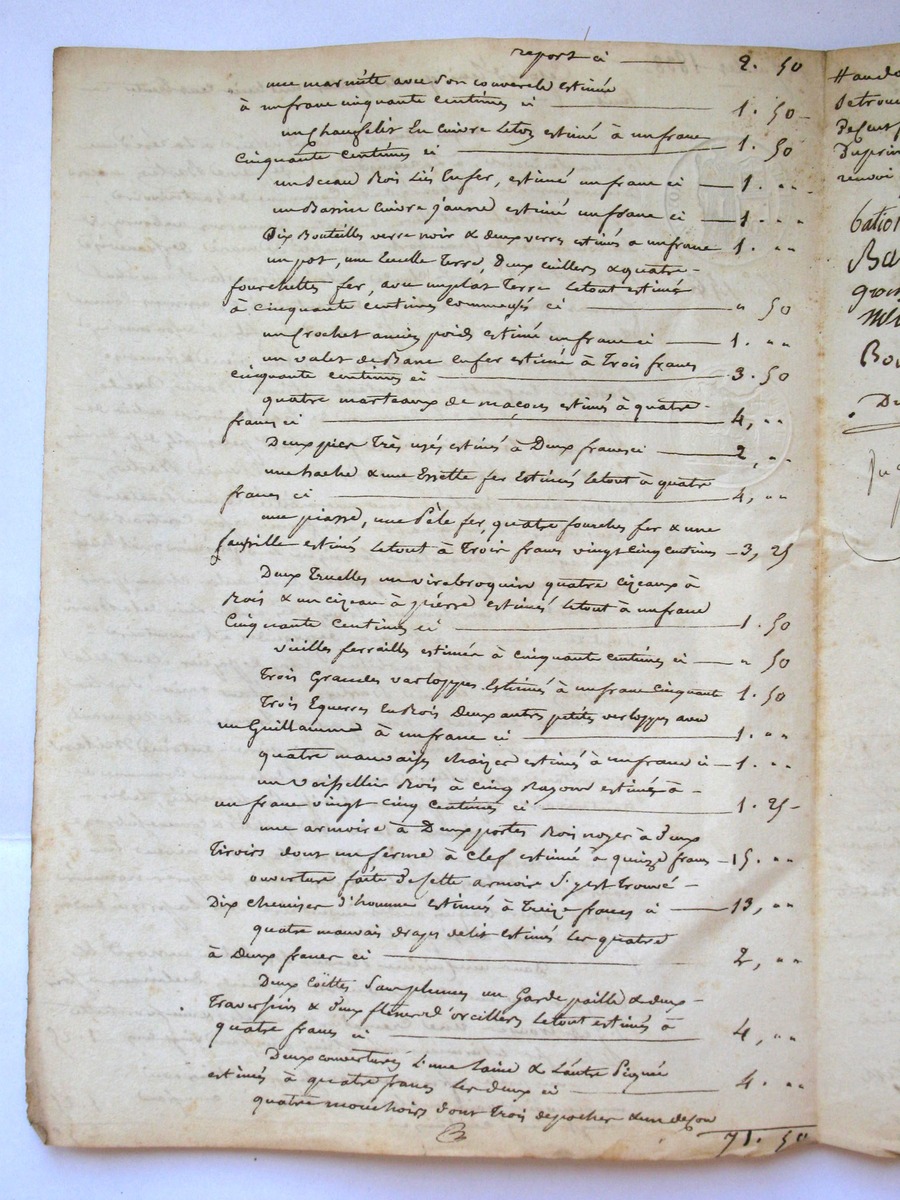 report ci — 2. 50
une marmite avec son couvercle estimée
à un franc cinquante centimes ci — 1. 50 –
un chaufelit En cuivre Leton estimé à un franc
cinquante centimes ci — 1. 50
un Sceau Bois Liés En fer, estimé un franc ci — 1. " "
un Bassin Cuivre jaune estimé un franc ci — 1 . " "
Dix Bouteilles verre noir & deux verres estimés a un franc 1. " "
un pot, une Ecuelle Terre, Deux cuillers & quatre -
fourchettes fer, avec un plat Terre Letout estimés
à cinquante centimes ci — " 50
un Crochet ancien poids estimé un franc ci — 1. " "
un valet de Banc En fer estimé à Trois francs
cinquante centimes ci — 3. 50
quatre marteaux de maçons estimés à quatre -
francs ci — 4, " "
Deux pics Très usés estimés à Deux francs ci — 2, " "
une hache & une Essette fer Estimés Letout à quatre
francs ci — 4, " "
une piarde, une Pèle fer, quatre fourches fer & une
faucille estimés Letout à Trois francs vingt cinq centimes — 3, 25
Deux Truelles un virebroquin quatre cizeaux à
Bois & un cizeau à pierre estimés Letout à un franc
Cinquante Centimes ci — 1. 50
vieilles ferrailles estimée à cinquante centimes ci — " 50
Trois Grandes varloppes Estimés à un franc cinquante 1. 50
Trois Equerres En Bois Deux autres petites verloppes avec
un Guillaume à un franc ci — 1. " "
quatre mauvaises chaizes estimés à un franc ci — 1. " "
un vaissellier Bois à cinq Rayons estimés à -
un franc vingt cinq Centimes ci — 1. 25 –
une armoire à Deux portes Bois noyer à Deux
Tiroirs dont un ferme à clef estimée à quinze francs — 15. " "
ouverture faite de cette armoire S'y est Trouvé -
Dix chemises d'homme estimés à Treize francs ci — 13, " "
quatre mauvais draps delit estimés Les quatre
à Deux francs ci — 2, " "
Deux Coëttes Sans plumes un Garde paille & deux -
Traversins & Deux d'oreillers Letout estimés à
quatre francs ci — 4, " "
Deux couvertures L'une Laine & L'autre Piquée
estimés à quatre francs Les deux ci — 4. " "
quatre mouchoirs dont Trois depocher & un de Cou
71. 50